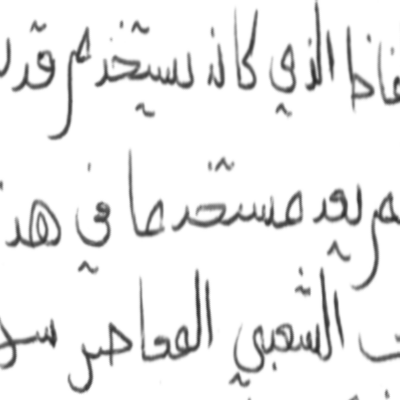 الذي كان يستخدم قد
لم يعد مستخدما في هذ
الشعبي المعاصر سو